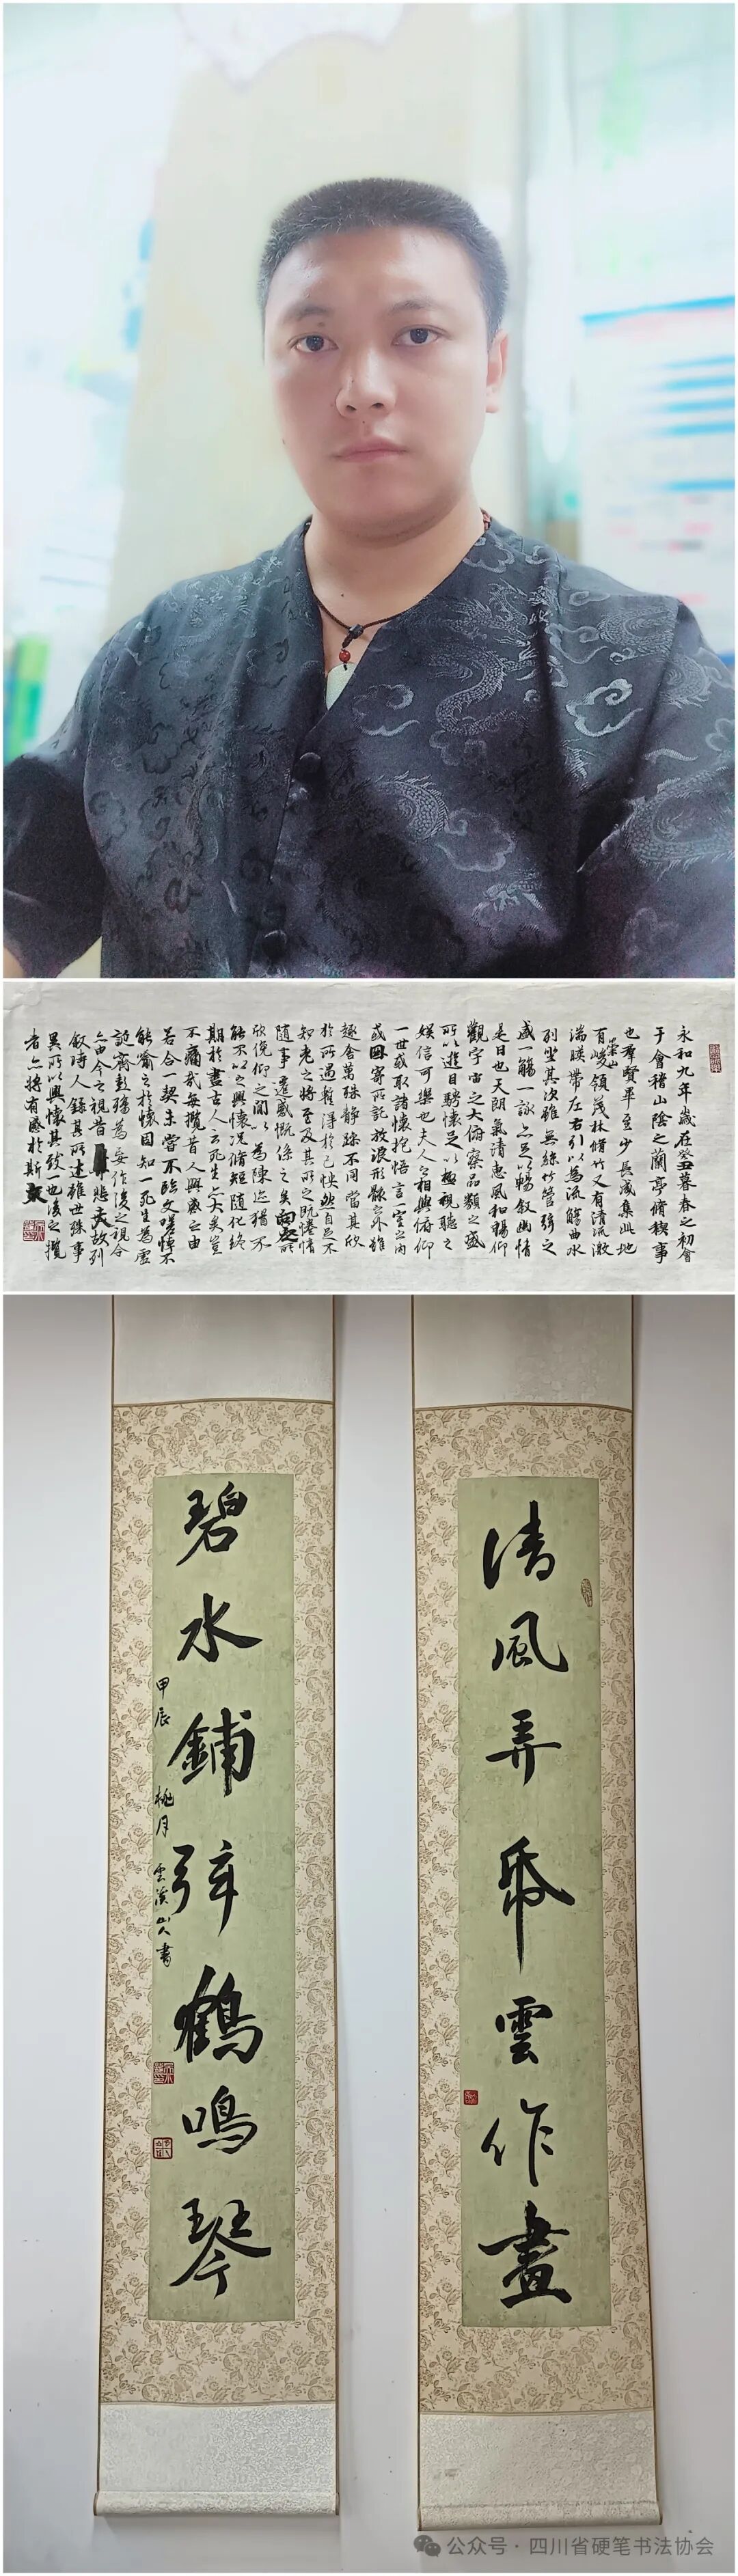 永和九年歲在癸丑暮春之初會
于會稽山陰之蘭亭脩稧事
也羣賢畢至少長咸集此地
有崇山峻領茂林脩竹又有清流激
湍暎帶左右引以為流觴曲水
列坐其次雖無絲竹管弦之
盛一觴一詠亦足以暢敘幽情
是日也天朗氣清惠風和暢仰
觀宇宙之大俯察品類之盛
所以遊目騁懷足以極視聽之
娛信可樂也夫人之相與俯仰
一世或取諸懷抱悟言一室之內
或因寄所託放浪形骸之外雖
趣舍萬殊靜躁不同當其欣
於所遇暫得於己怏然自足不
知老之將至及其所之既惓情
隨事遷感慨係之矣向之所
欣俛仰之間以為陳迹猶不
能不以之興懷況脩短隨化終
期於盡古人云死生亦大矣豈
不痛哉每攬昔人興感之由
若合一契未嘗不臨文嗟悼不
能喻之於懷固知一死生為虛
誕齊彭殤為妄作後之視今
亦由今之視昔悲夫故列
敘時人錄其所述雖世殊事
異所以興懷其致一也後之攬
者亦將有感於斯文
清風弄帋雲作畫
碧水鋪弦鶴鳴琴
甲辰桃月雲溪山人書
公众号·四川省硬笔书法协会